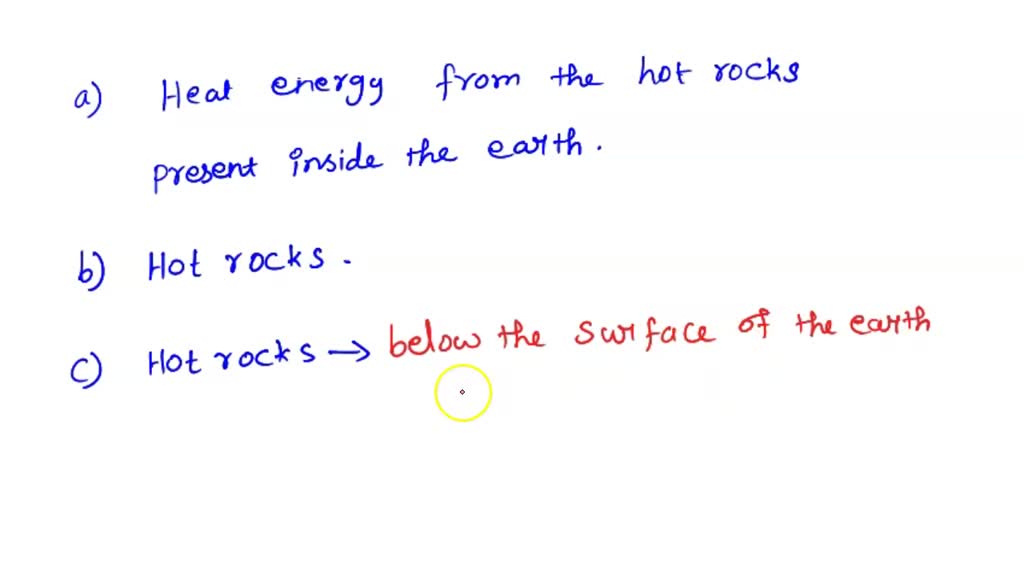 a) Heat energy from the hot rocks
present inside the earth.
b) Hot rocks.
c) Hot rocks → below the surface of the earth